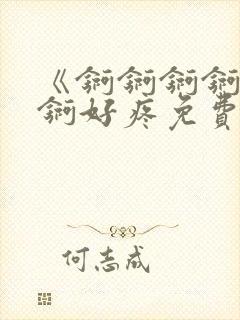 《锕锕锕锕
锕好疼免費
何志成